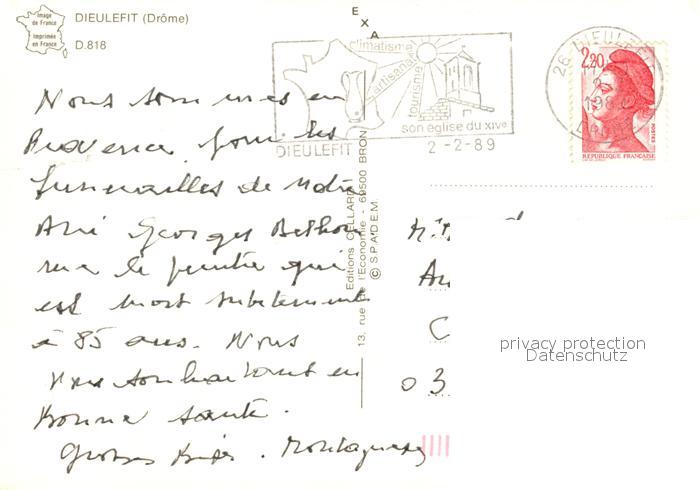 Image
de France
Imprimée
en France
DIEULEFIT (Drôme)
D.818
EXA
climatisme
artisanat
tourisme
son église du XIVe
DIEULEFIT
2-2-89
26 DIEULEFIT
DROME
2,20
POSTES
REPUBLIQUE FRANÇAISE
Editions CELLARD
13, rue de l'Economie - 69500 BRON
© S.P.A.D.E.M.
Nous sommes en
Provence pour les
funérailles de notre
Ami Georges
le peintre qui
est mort subitement
à 85 ans. Nous
vous souhaitons en
bonne santé.
Grosses
03
privacy protection
Datenschutz